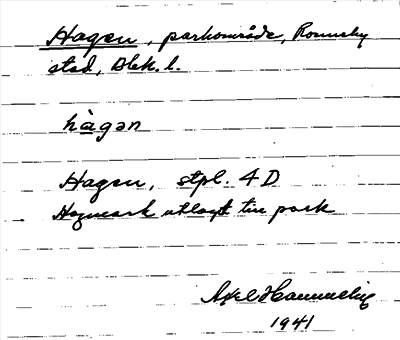 Hagen, parkområde, Ronneby
stad, Blek. l.
hàgən
Hagen, stpl. 4 D
Hagmark utlagt till park
Axel Hammelin
1941